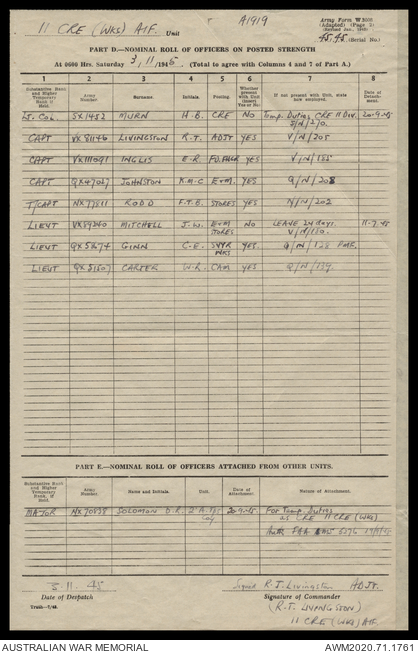 11 CRE (WKS) AIF. Unit
A1919
Army Form W 3008
(Adapted) (Page 2)
(Serial No.)
PART D.—NOMINAL ROLL OF OFFICERS ON POSTED STRENGTH
At 0600 Hrs. Saturday 3/11/1945 (Total to agree with Columns 4 and 7 of Part A.)
1 2 3 4 5 6 7 8
Substantive Rank and Higher Temporary Rank if Held. Army Number. Surname. Initials. Posting. Whether present with Unit (Insert Yes or No) If not present with Unit, state how employed. Date of Detachment.
Lt. Col SX1452 MURN H.B. CRE NO Temp. Duties CRE 11 Div. 20-9-45
S/N/270.
CAPT VX81146 LIVINGSTON R.T. ADJT YES V/N/205
CAPT VX111091 INGLIS E.R. YES V/N/155
CAPT QX47027 JOHNSTON K.M.C E+M. YES Q/N/208
T/CAPT NX77811 RODD F.T.B. STORES YES N/N/202
LIEUT VX89240 MITCHELL J.W. E+M STORES NO LEAVE 24 days. 11-7-45
V/N/180.
LIEUT GINN C.E. WKS YES. Q/N/128
LIEUT QX51507 CARTER W.R. CAM YES Q/N/139.
PART E.—NOMINAL ROLL OF OFFICERS ATTACHED FROM OTHER UNITS.
Substantive Rank and Higher Temporary Rank, if Held. Army Number. Name and Initials. Unit. Date of Attachment. Nature of Attachment.
MAJOR NX70878 SOLOMON D.R. 20-9-45 For Temp. Duties
as CRE 11 CRE (WKS)
3.11.45 Signed R.T. Livingston ADJT.
Date of Despatch Signature of Commander
(R.T. LIVINGSTON)
11 CRE (WKS) AIF
AUSTRALIAN WAR MEMORIAL AWM2020.71.1761